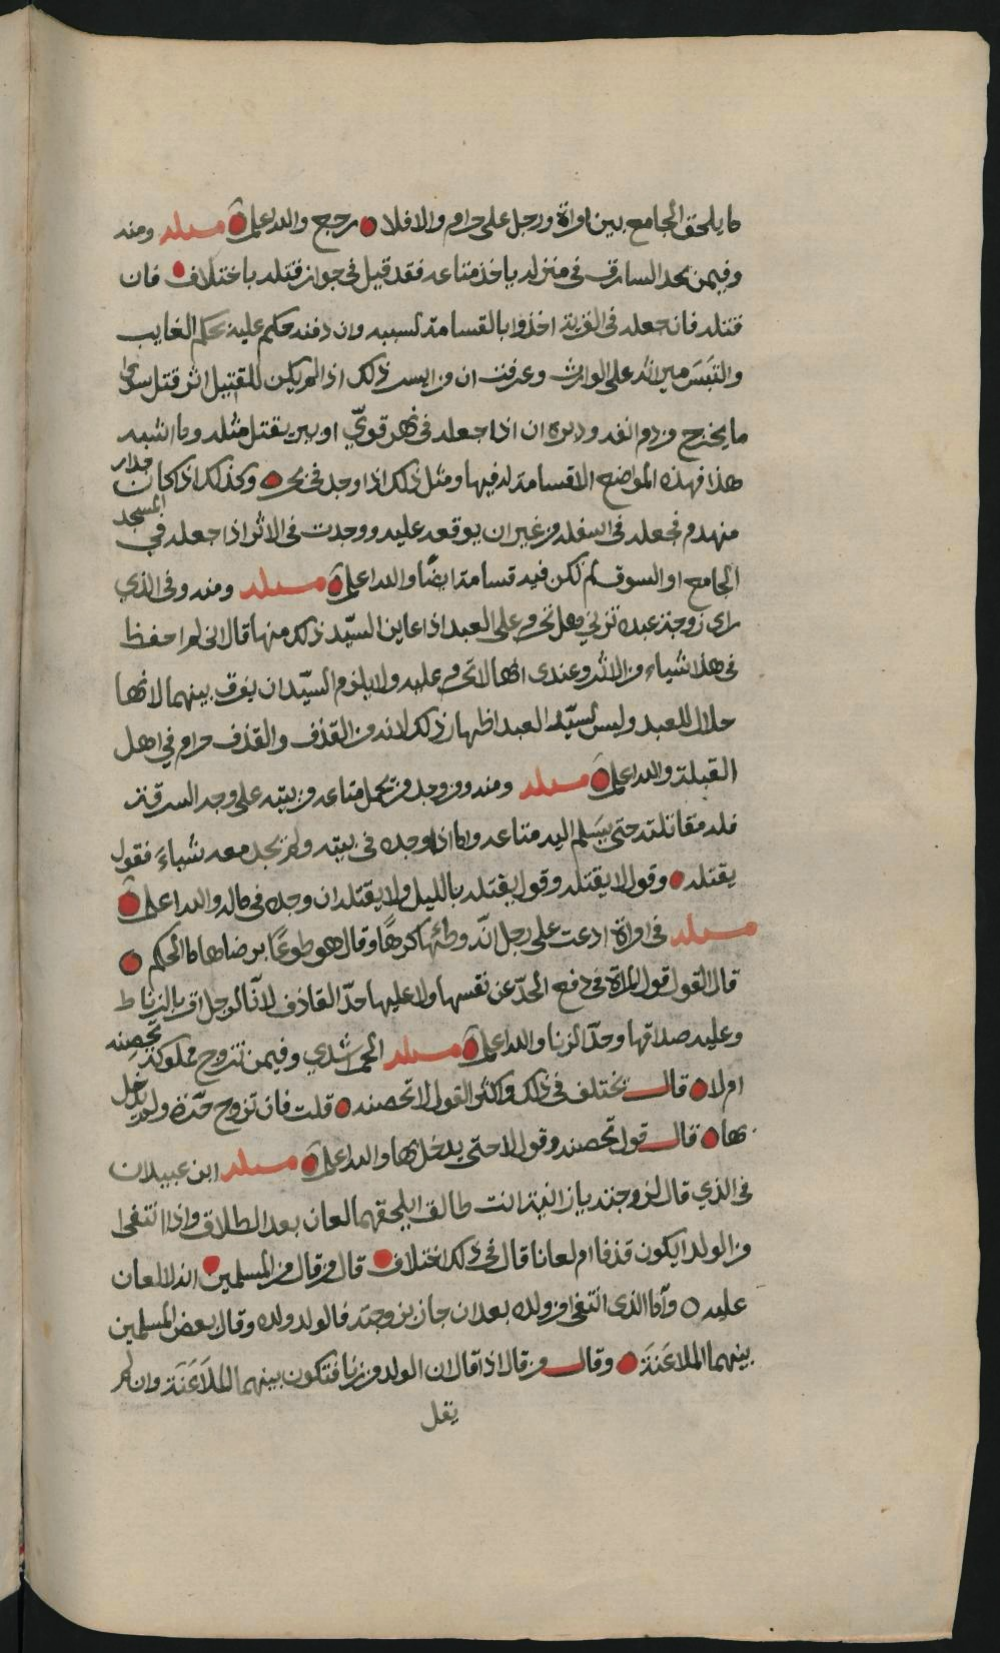 ما يلحق الجامع بين امراة ورجل على حرام والا فلا رجع والله اعلم مسئلة ومنه
وفيمن يجد السارق في منزله ياخذ متاعه فقد قيل في جواز قتله باختلاف فان
قتله فان جعله في القرية اخذوا بالقسامة لسببه وان دفنه حكم عليه بحكم الغايب
والتبس ميراثه على الوارث وعرفت ان من ايسر ذلك اذا لم يكن للمقتيل اثر قتل سوى
ما يخرج من دم انفه ودبره ان اذا جعله في نهر قويّ او بير يقتل مثله وما اشبه
هذا فهذه المواضع لا قسامة له فيها ومثل ذلك اذا وجد في بحر وكذلك اذا كان جدار
منهدم فجعله في اسفله من غير ان يوقعه عليه ووجدت في الاثر اذا جعله في المسجد
الجامع او السوق لم تكن فيه قسامة ايضًا والله اعلم مسئلة ومنه وفي الذي
راى زوجة عبده تزني هل تحرم على العبد اذا عاين السيّد ذلك منها قال اني لم احفظ
في هذا شياء من الاثر وعندي انها لا تحرم عليه ولا يلزم السيّد ان يفرق بينهما لانها
حلال للعبد وليس لسيّد العبد اظهار ذلك لانه من القذف والقذف حرام في اهل
القبلة والله اعلم مسئلة ومنه ومن وجد من يحمل متاعه من بيته على وجه السرقة
فله مقاتلته حتى يسلم اليه متاعه واما اذا وجده في بيته ولم يجد معه شياءً فقول
يقتله وقول لا يقتله وقول يقتله بالليل ولا يقتله ان وجده في ماله والله اعلم
مسئلة في امراة ادعت على رجل انّه وطئها كرهًا وقال هو طوعًا برضاها ما الحكم
قال القول قول المراة في دفع الحدّ عن نفسها ولا عليها حدّ القاذف لانّ الرجل اقر بالزنا
وعليه صداقها وحدّ الزنا والله اعلم مسئلة الحمراشدي وفيمن تزوج مملوكة تحصنه
ام لا قال يختلف في ذلك واكثر القول لا تحصنه قلت فان تزوج حرّة ولم يدخل
بها قال قول تحصنه وقول لا حتى يدخل بها والله اعلم مسئلة ابن عبيدان
في الذي قال لزوجته يا زانية انت طالق ايلحقهما لعان بعد الطلاق واذا انتفى
من الولد ايكون قذفا ام لعانا قال في ذلك اختلاف قال من قال من المسلمين انه لا لعان
عليه وأما الذي انتفى من ولده بعد ان جاز بزوجته فالولد ولده وقال بعض المسلمين
بينهما الملاعَنَة وقال من قال اذا قال ان الولد من زنا فتكون بينهما الملاَعَنَة وان لم
يقل